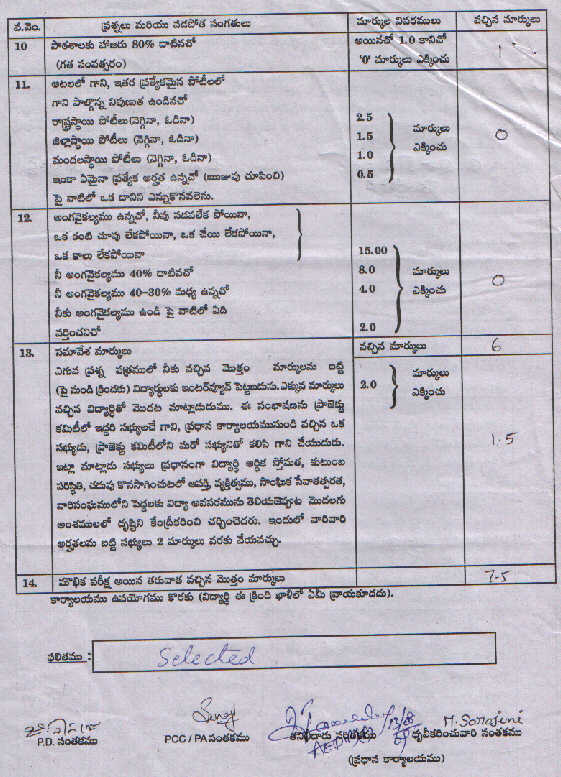 వ.నెం. ప్రశ్నలు మరియు నడపోత సంగతులు మార్కుల వివరములు వచ్చిన మార్కులు
10 పాఠశాలకు హాజరు 80% దాటినచో అయినచో 1.0 కానిచో 1
(గత సంవత్సరం) '0' మార్కులు ఎక్కించు
11. ఆటలలో గాని, ఇతర ప్రత్యేకమైన పోటీలలో
గాని పాల్గొన్న నిపుణత ఉండినచో
రాష్ట్రస్థాయి పోటీలు (నెగ్గినా, ఓడినా) 2.5 మార్కులు
జిల్లాస్థాయి పోటీలు (నెగ్గినా, ఓడినా) 1.5 ఎక్కించు 0
మండలస్థాయి పోటీలు (నెగ్గినా, ఓడినా) 1.0
ఇంకా ఏమైనా ప్రత్యేక అర్హత ఉన్నచో (ఋజువు చూపించి) 0.5
పై వాటిలో ఒక దానిని ఎన్నుకొనవలెను.
12. అంగవైకల్యము ఉన్నచో, నీవు నడవలేక పోయినా,
ఒక కంటి చూపు లేకపోయినా, ఒక చేయి లేకపోయినా,
ఒక కాలు లేకపోయినా 15.00
నీ అంగవైకల్యము 40% దాటినచో 8.0 మార్కులు 0
నీ అంగవైకల్యము 40-30% మధ్య ఉన్నచో 4.0 ఎక్కించు
నీకు అంగవైకల్యము ఉండి పై వాటిలో ఏది
వర్తించనిచో 2.0
13. సమావేశ మార్కులు వచ్చిన మార్కులు 6
ఎగువ ప్రశ్న పత్రములో నీకు వచ్చిన మొత్తం మార్కులను బట్టి మార్కులు
(పై నుండి క్రిందకు) విద్యార్థులకు ఇంటర్వ్యూన్ పెట్టబడును. ఎక్కువ మార్కులు 2.0 ఎక్కించు
వచ్చిన విద్యార్థితో మొదట మాట్లాడుదుము. ఈ సంభాషణను ప్రాజెక్టు
కమిటీలో ఇద్దరి సభ్యులచే గాని, ప్రధాన కార్యాలయమునుండి వచ్చిన ఒక
సభ్యుడు, ప్రాజెక్టు కమిటీలోని మరో సభ్యునితో కలిపి గాని చేయుదురు. 1.5
ఇట్లా మాట్లాడు సభ్యులు ప్రధానంగా విద్యార్థి ఆర్థిక స్తోమత, కుటుంబ
పరిస్థితి, చదువు కొనసాగించుటలో ఆసక్తి, వ్యక్తిత్వము, సాంఘిక సేవాతత్పరత,
వారిసంఘములోని పెద్దలకు విద్యా అవసరమును తెలియచెప్పుట మొదలగు
అంశములలో దృష్టిని కేంద్రీకరించి చర్చించెదరు. ఇందులో వారివారి
అర్హతలను బట్టి సభ్యులు 2 మార్కులు వరకు వేయవచ్చు.
14. మౌఖిక పరీక్ష అయిన తరువాత వచ్చిన మొత్తం మార్కులు 7.5
కార్యాలయము ఉపయోగము కొరకు (విద్యార్థి ఈ క్రింది ఖాళీలో ఏమీ వ్రాయకూడదు).
ఫలితము : Selected
M. Sarojini
P.D. సంతకము PCC / PA సంతకము ధృవీకరించువారి సంతకము
(ప్రధాన కార్యాలయము)